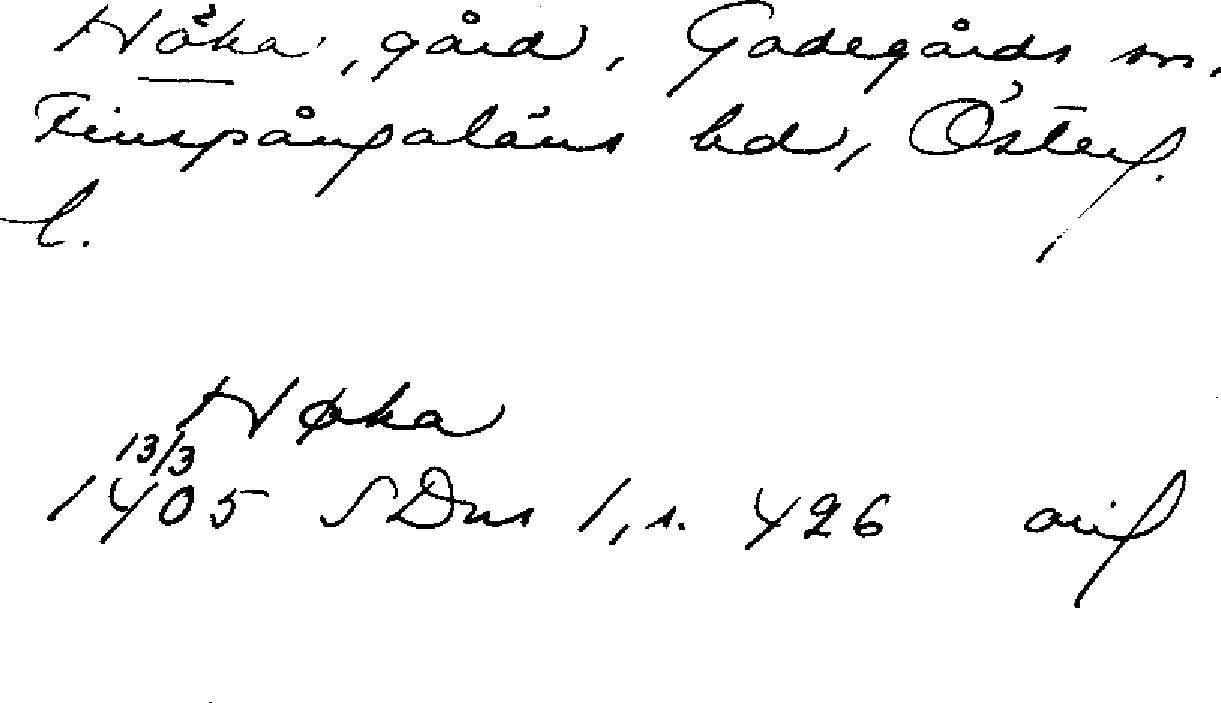 Höka, gård, Godegårds sn,
Finspångaläns hd, Österg.
l.
Høka
13/3
1405 SDns 1, s. 426 orig